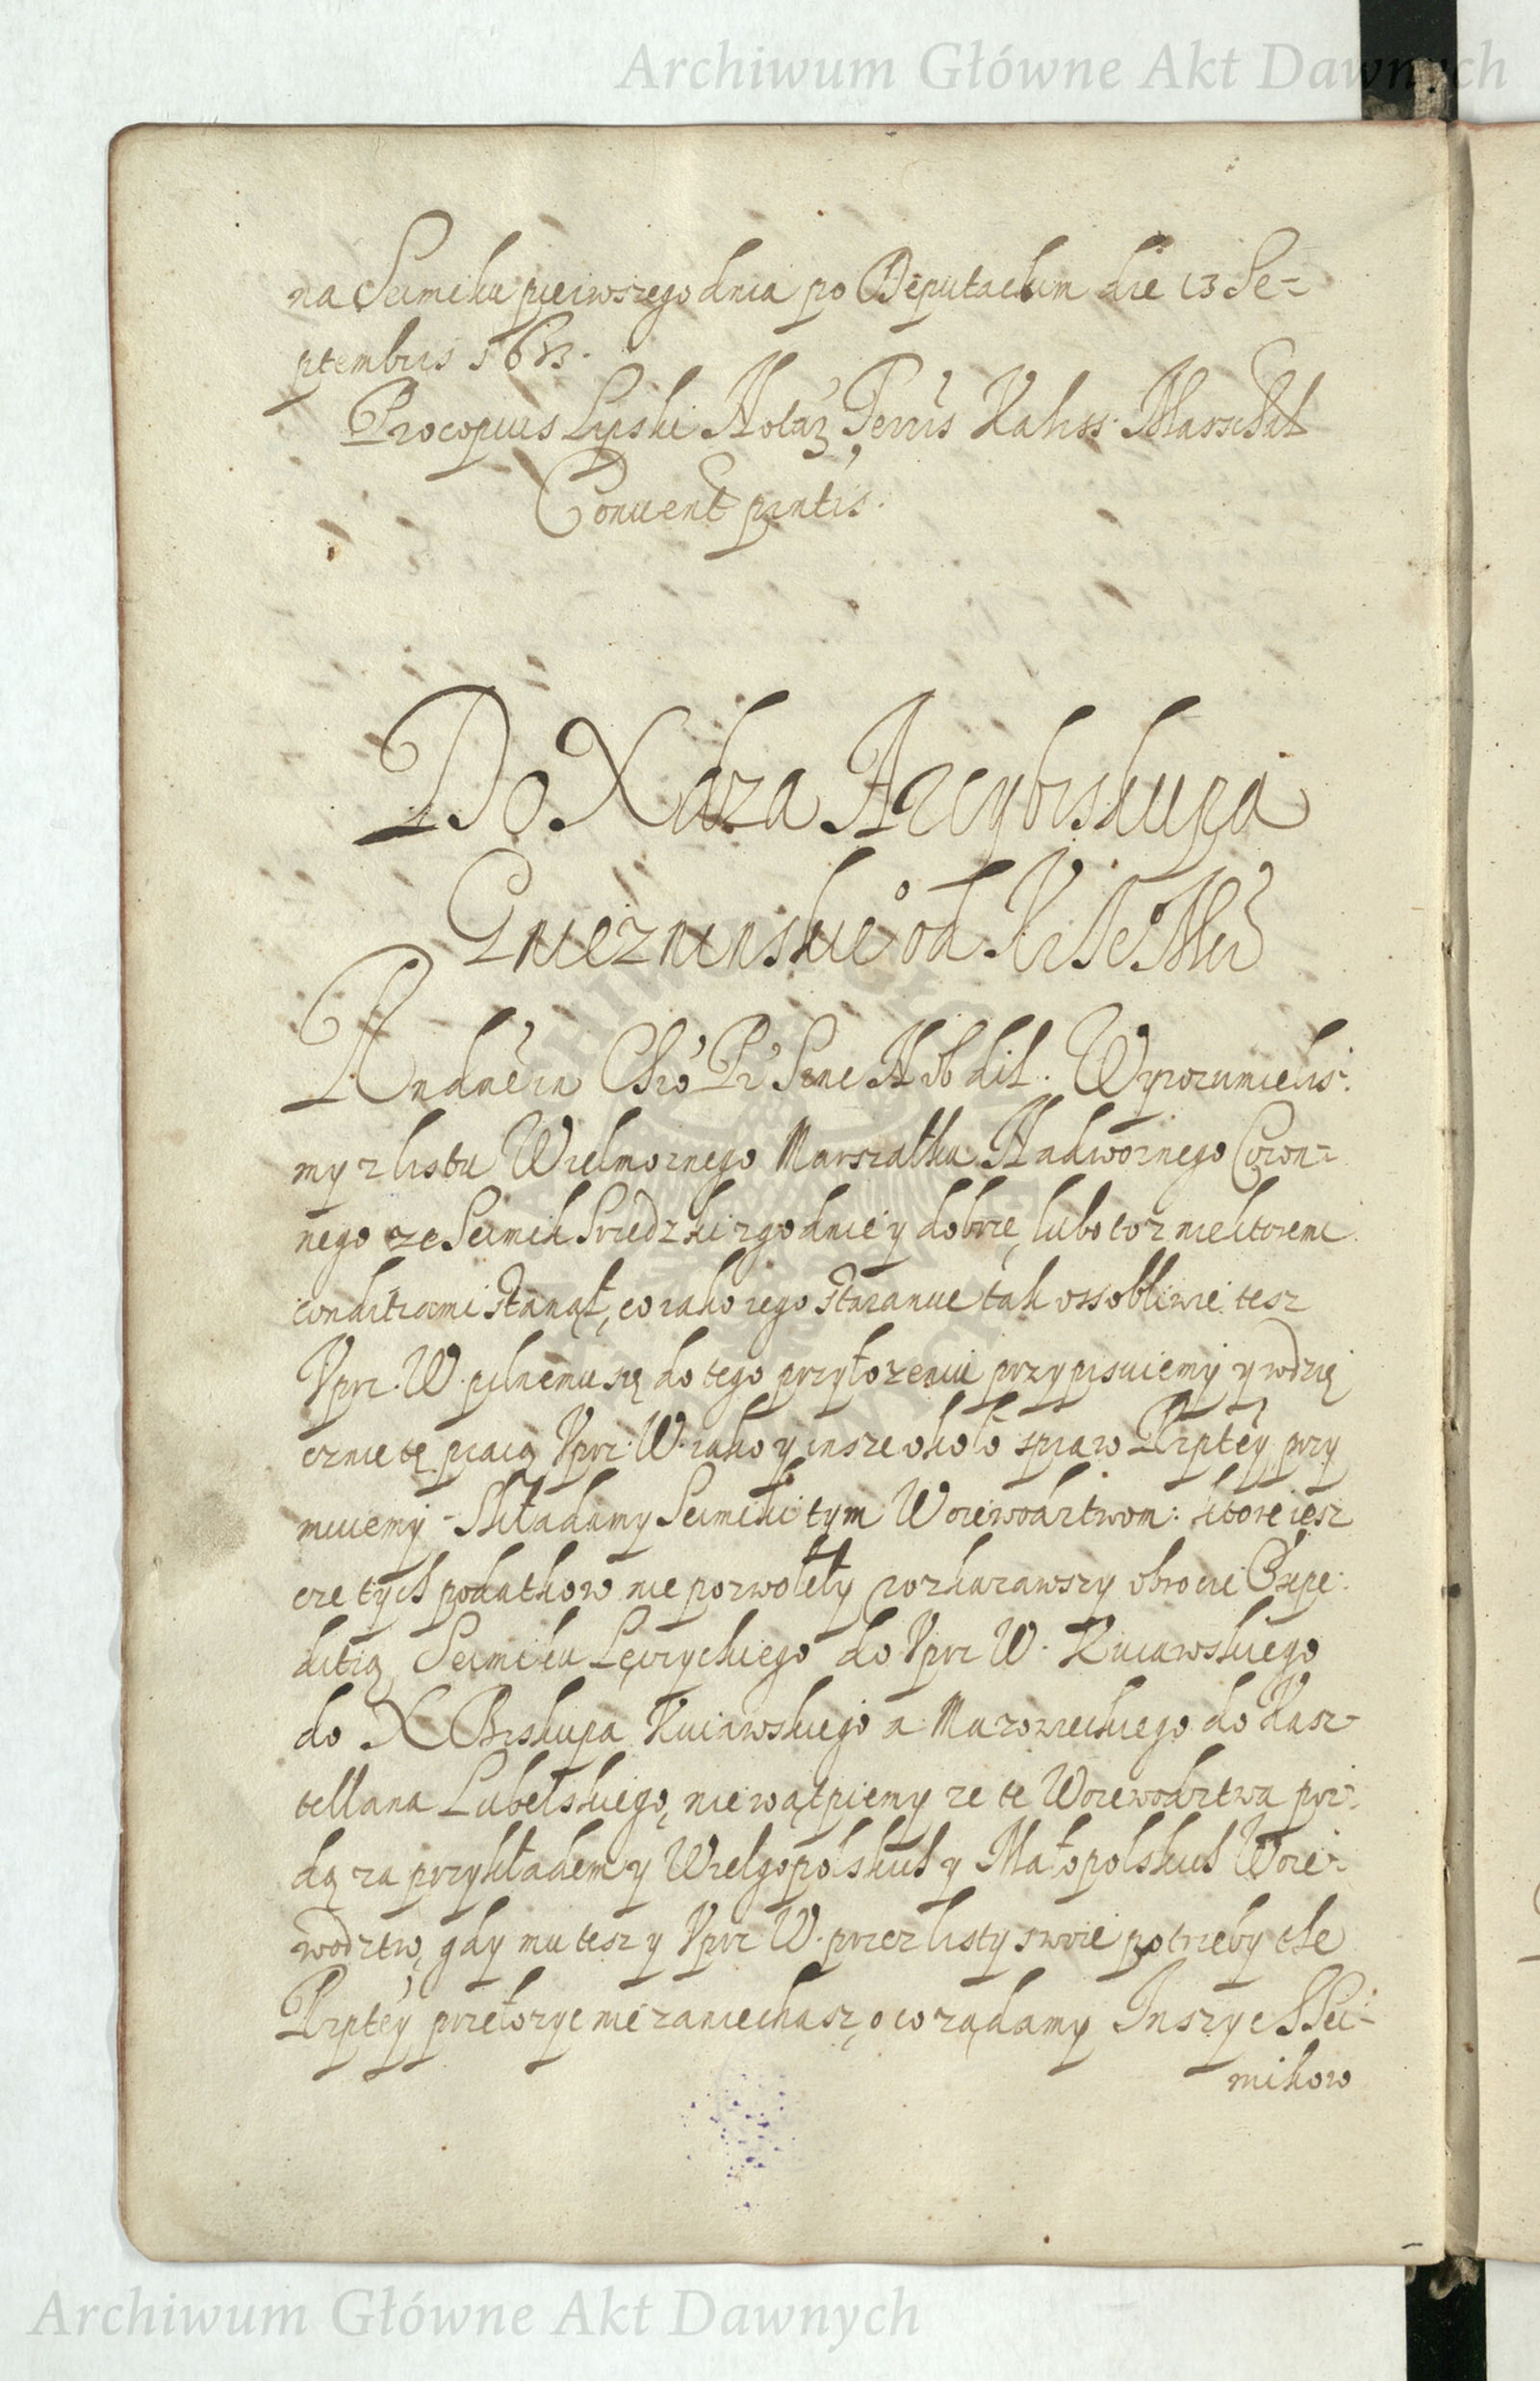 Archiwum Główne Akt Dawnych
na Seimiku pierwszego dnia po Deputackim die 13 Se-
ptembris
Procopius Lipski Notarz Terris Kaliss. Marschal
Conuent pntis.
Do X dza Arcybiskupa
Gnieznienskie° od Kr Je° Mci
Rndme in Chro Pr Sinc N Nob dil. Wyrozumielis-
my z listu Wielmoznego Marszałka Nadwornego Coron-
nego ze Seimik Sredzki zgodnie y dobrze, lubo to z niektoremi
conditiami stanął, co iako iego staraniu tak ossobliwie tesz
Vprz. W. pilnemu się do tego przyłozeniu przypisuiemy y wdzię
cznie tę pracą Vprz. W. iako y insze około spraw Rzptey przy
muiemy. Składamy Seimiki tym Woiewodztwom: ktore iesz
cze tych podatkow nie pozwoleły rozkazawszy obrocic Expe-
ditią Seimiku Lęczyckiego do Vprz W. Kuiawskiego
do X Biskupa Kuiawskiego a Mazowieckiego do Kasz-
tellana Lubelskiego, nie wątpiemy ze te Woiewodztwa poi-
dą za przykładem y Wielgopolskich y Małopolskich Woie-
wodztw, gdy mu tesz y Vprz W. przez listy swoie potrzeby te
Rzptey przełozyc nie zaniechasz, o co ządamy Inszych Sei-
mikow
Archiwum Główne Akt Dawnych